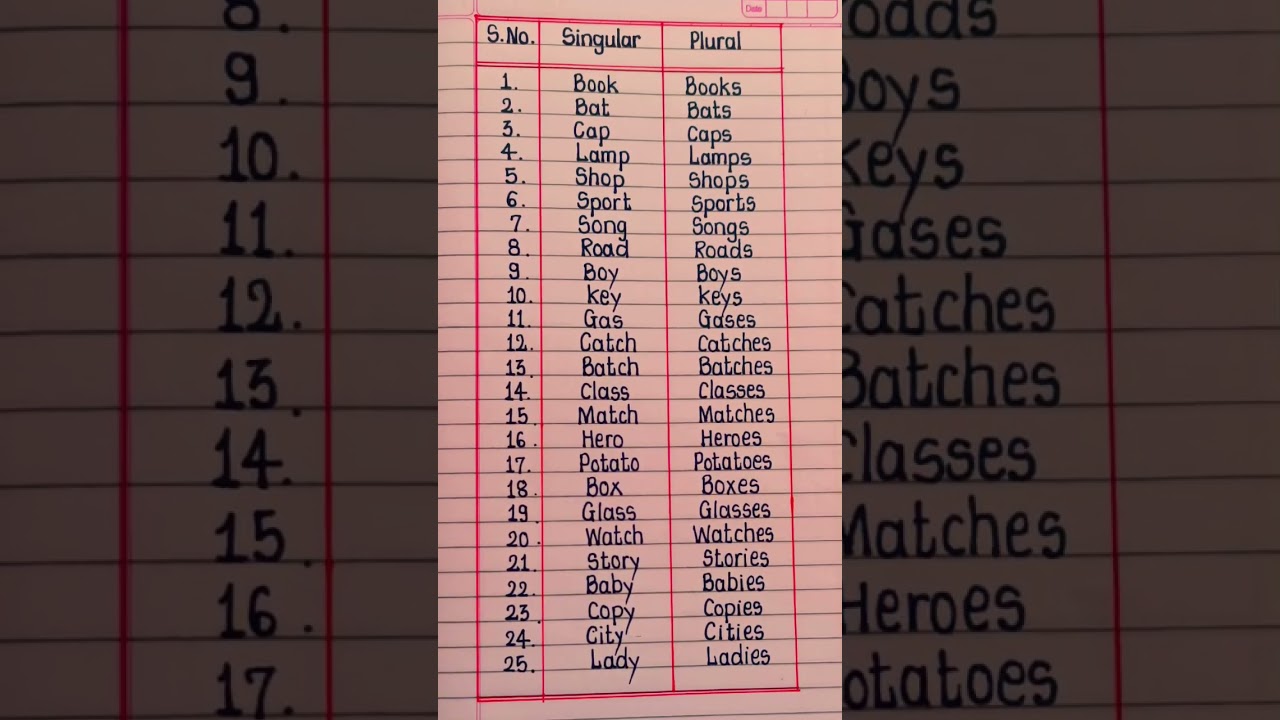 Date
S.No. Singular Plural
1. Book Books
2. Bat Bats
3. Cap Caps
4. Lamp Lamps
5. Shop Shops
6. Sport Sports
7. Song Songs
8. Road Roads
9. Boy Boys
10. key keys
11. Gas Gases
12. Catch Catches
13. Batch Batches
14. Class Classes
15. Match Matches
16. Hero Heroes
17. Potato Potatoes
18. Box Boxes
19. Glass Glasses
20. Watch Watches
21. Story Stories
22. Baby Babies
23. Copy Copies
24. City Cities
25. Lady Ladies